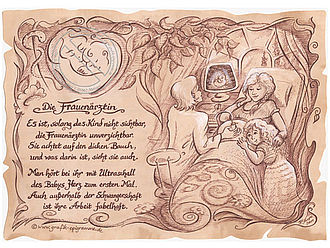 Die Frauenärztin
Es ist, solang das Kind nicht sichtbar,
die Frauenärztin unverzichtbar.
Sie achtet auf den dicken Bauch,
und was darin ist, sieht sie auch.
Man hört bei ihr mit Ultraschall
des Babys Herz zum ersten Mal.
Auch außerhalb der Schwangerschaft
ist ihre Arbeit fabelhaft.
© www.grafik-epigramme.de